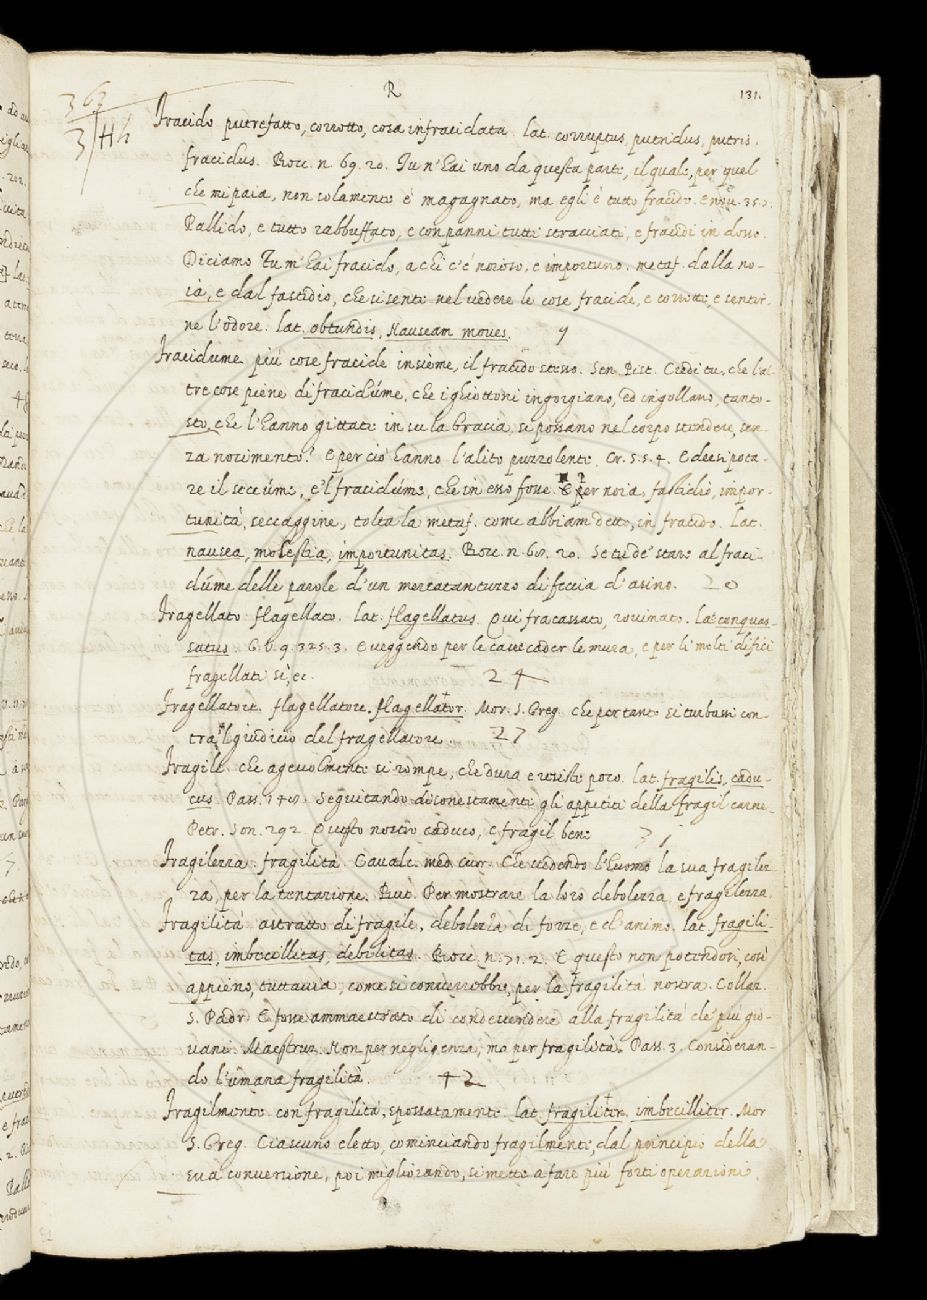 R
131.
363
3 Hh
Fracido putrefatto, corrotto, cosa infracidata. lat. corruptus, putridus, putris,
fracidus. Bocc. n. 69. 20. Tu n'hai uno da questa parte, il quale, per quel
che mi paia, non solamente è magagnato, ma egli è tutto fracido. E nov. 35.
Pallido, e tutto rabbuffato, e con panni tutti stracciati, e fracidi in dosso.
Diciamo Tu m'hai fracido, a chi c'è noioso, e importuno. metaf. dalla no-
ia, e dal fastidio, che si sente nel vedere le cose fracide, e corrotte, e sentir-
ne l'odore. lat. obtundis, Nauseam moves. 9
Fracidume più cose fracide insieme, il fracido stesso. Sen. Pist. Credi tu, che l'al
tre cose piene di fracidúme, che i ghiottoni ingorgiano, ed ingollano, tanto-
sto, che l'hanno gittate in su la bracia, si possano nel corpo stendere, sen-
za nocimento? E per ciò hanno l'alito puzzolente. Cr. 5. 5. 4. E deesi poca-
re il seccúme, e'l fracidúme, che in esso fosse. E per noia, fastidio, impor-
tunità, seccaggine, tolta la metaf. come abbiam detto, in fracido. Lat.
nausea, molestia, importunitas. Bocc. n. 60. 20. Se tu de' stare al fraci-
dúme delle parole d'un mercatantuzzo di feccia d'asino. 20
Fragellato. flagellato. lat. flagellatus. Qui fracassato, rovinato. Lat. conquas-
satus. G. V. 9. 325. 3. E veggendo per le cave cader le mura, e per li molti dificj
fragellati sì, ec. 24
Fragellatore. flagellatore. flagellator. Mor. S. Greg. che per tanto si turbassi con-
tra 'l giudicio del fragellatore. 27
Fragile. che agevolmente si rompe, che dura e resiste poco. lat. fragilis, cadu-
cus. Pass. 140. Seguitando disonestamente gli appetiti della fragil carne.
Petr. Son. 292. Questo nostro caduco, e fragil bene 31
Fragilezza. fragilità. Cavalc. med. cuor. Che vedendo l'huomo la sua fragilez
za, per la tentazione. But. Per mostrare la loro debolezza, e fragilezza.
Fragilità. astratto di fragile, debolezza di forze, e d'animo. lat. fragili-
tas, imbecillitas, debilitas. Bocc. n. 31. 2. E questo non potendosi, così
appieno, tuttavia, come si converrebbe, per la fragilità nostra. Collaz.
S. Padr. E fosse ammaestrato di condescendere alla fragilità de' più gio-
vani. Maestruz. Non per negligenza, ma per fragilità. Pass. 3. Consideran-
do l'umana fragilità. 42
Fragilmente. con fragilità, spossatamente. lat. fragiliter, imbecilliter. Mor
S. Greg. Ciascuno eletto, cominciando fragilmente, dal principio della
sua conversione, poi migliorando, si mette a fare più forti operazioni.